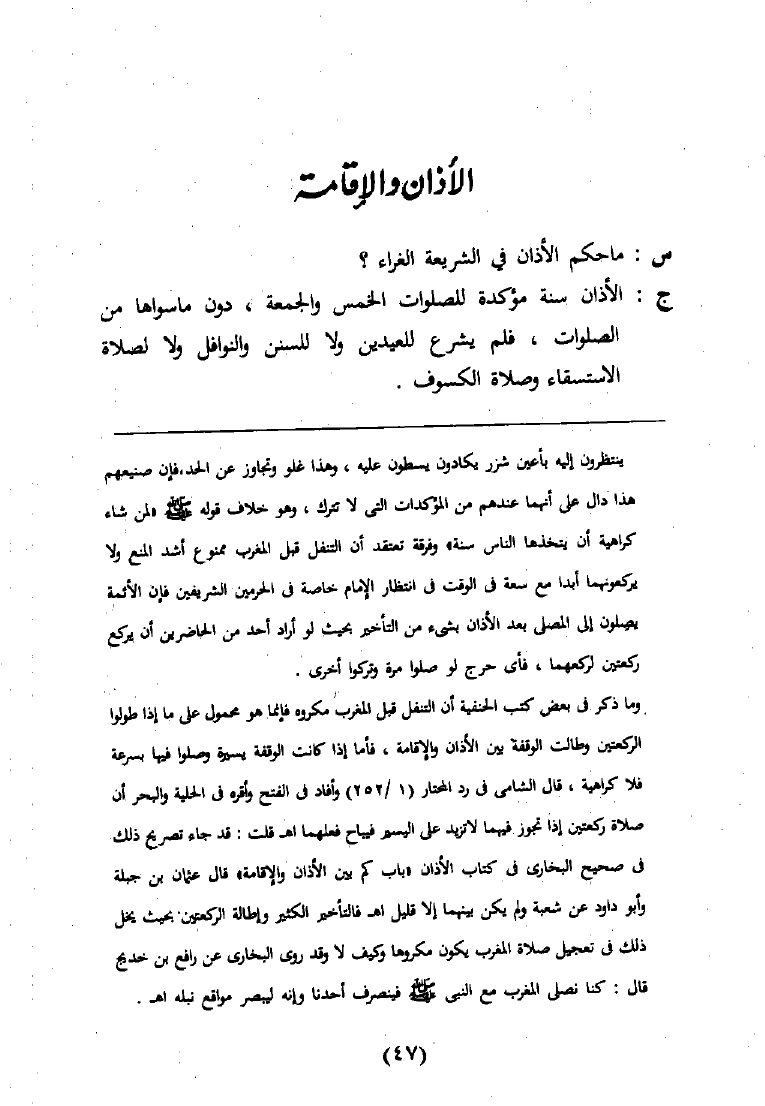 الأذان والإقامة
س : ماحكم الأذان في الشريعة الغراء ؟
ج : الأذان سنة مؤكدة للصلوات الخمس والجمعة ، دون ماسواها من
الصلوات ، فلم يشرع للعيدين ولا للسنن والنوافل ولا لصلاة
الاستسقاء وصلاة الكسوف .
ينتظرون إليه بأعين شزر يكادون يسطون عليه ، وهذا غلو وتجاوز عن الحد ، فإن صنيعهم
هذا دال على أنهما عندهم من المؤكدات التى لا تترك ، وهو خلاف قوله ﷺ «لمن شاء
كراهية أن يتخذها الناس سنة» وفرقة تعتقد أن التنفل قبل المغرب ممنوع أشد المنع ولا
يركعونهما أبدا مع سعة فى الوقت فى انتظار الإمام خاصة فى الحرمين الشريفين فإن الأئمة
يصلون إلى المصلى بعد الأذان بشىء من التأخير بحيث لو أراد أحد من الحاضرين أن يركع
ركعتين لركعهما ، فأى حرج لو صلوا مرة وتركوا أخرى .
وما ذكر فى بعض كتب الحنفية أن التنفل قبل المغرب مكروه فإنما هو محمول على ما إذا طولوا
الركعتين وطالت الوقفة بين الأذان والإقامة ، فأما إذا كانت الوقفة يسيرة وصلوا فيها بسرعة
فلا كراهية ، قال الشامى فى رد المحتار (١ /٢٥٢) وأفاد فى الفتح وأقره فى الحلية والبحر أن
صلاة ركعتين إذا تجوز فيهما لاتزيد على اليسير فيباح فعلهما اهـ قلت : قد جاء تصريح ذلك
فى صحيح البخارى فى كتاب الأذان «باب كم بين الأذان والإقامة» قال عثمان بن جبلة
وأبو داود عن شعبة ولم يكن بينهما إلا قليل اهـ فالتأخير الكثير وإطالة الركعتين بحيث يخل
ذلك فى تعجيل صلاة المغرب يكون مكروها وكيف لا وقد روى البخارى عن رافع بن خديج
قال : كنا نصلى المغرب مع النبى ﷺ فينصرف أحدنا وإنه ليبصر مواقع نبله اهـ .
(٤٧)